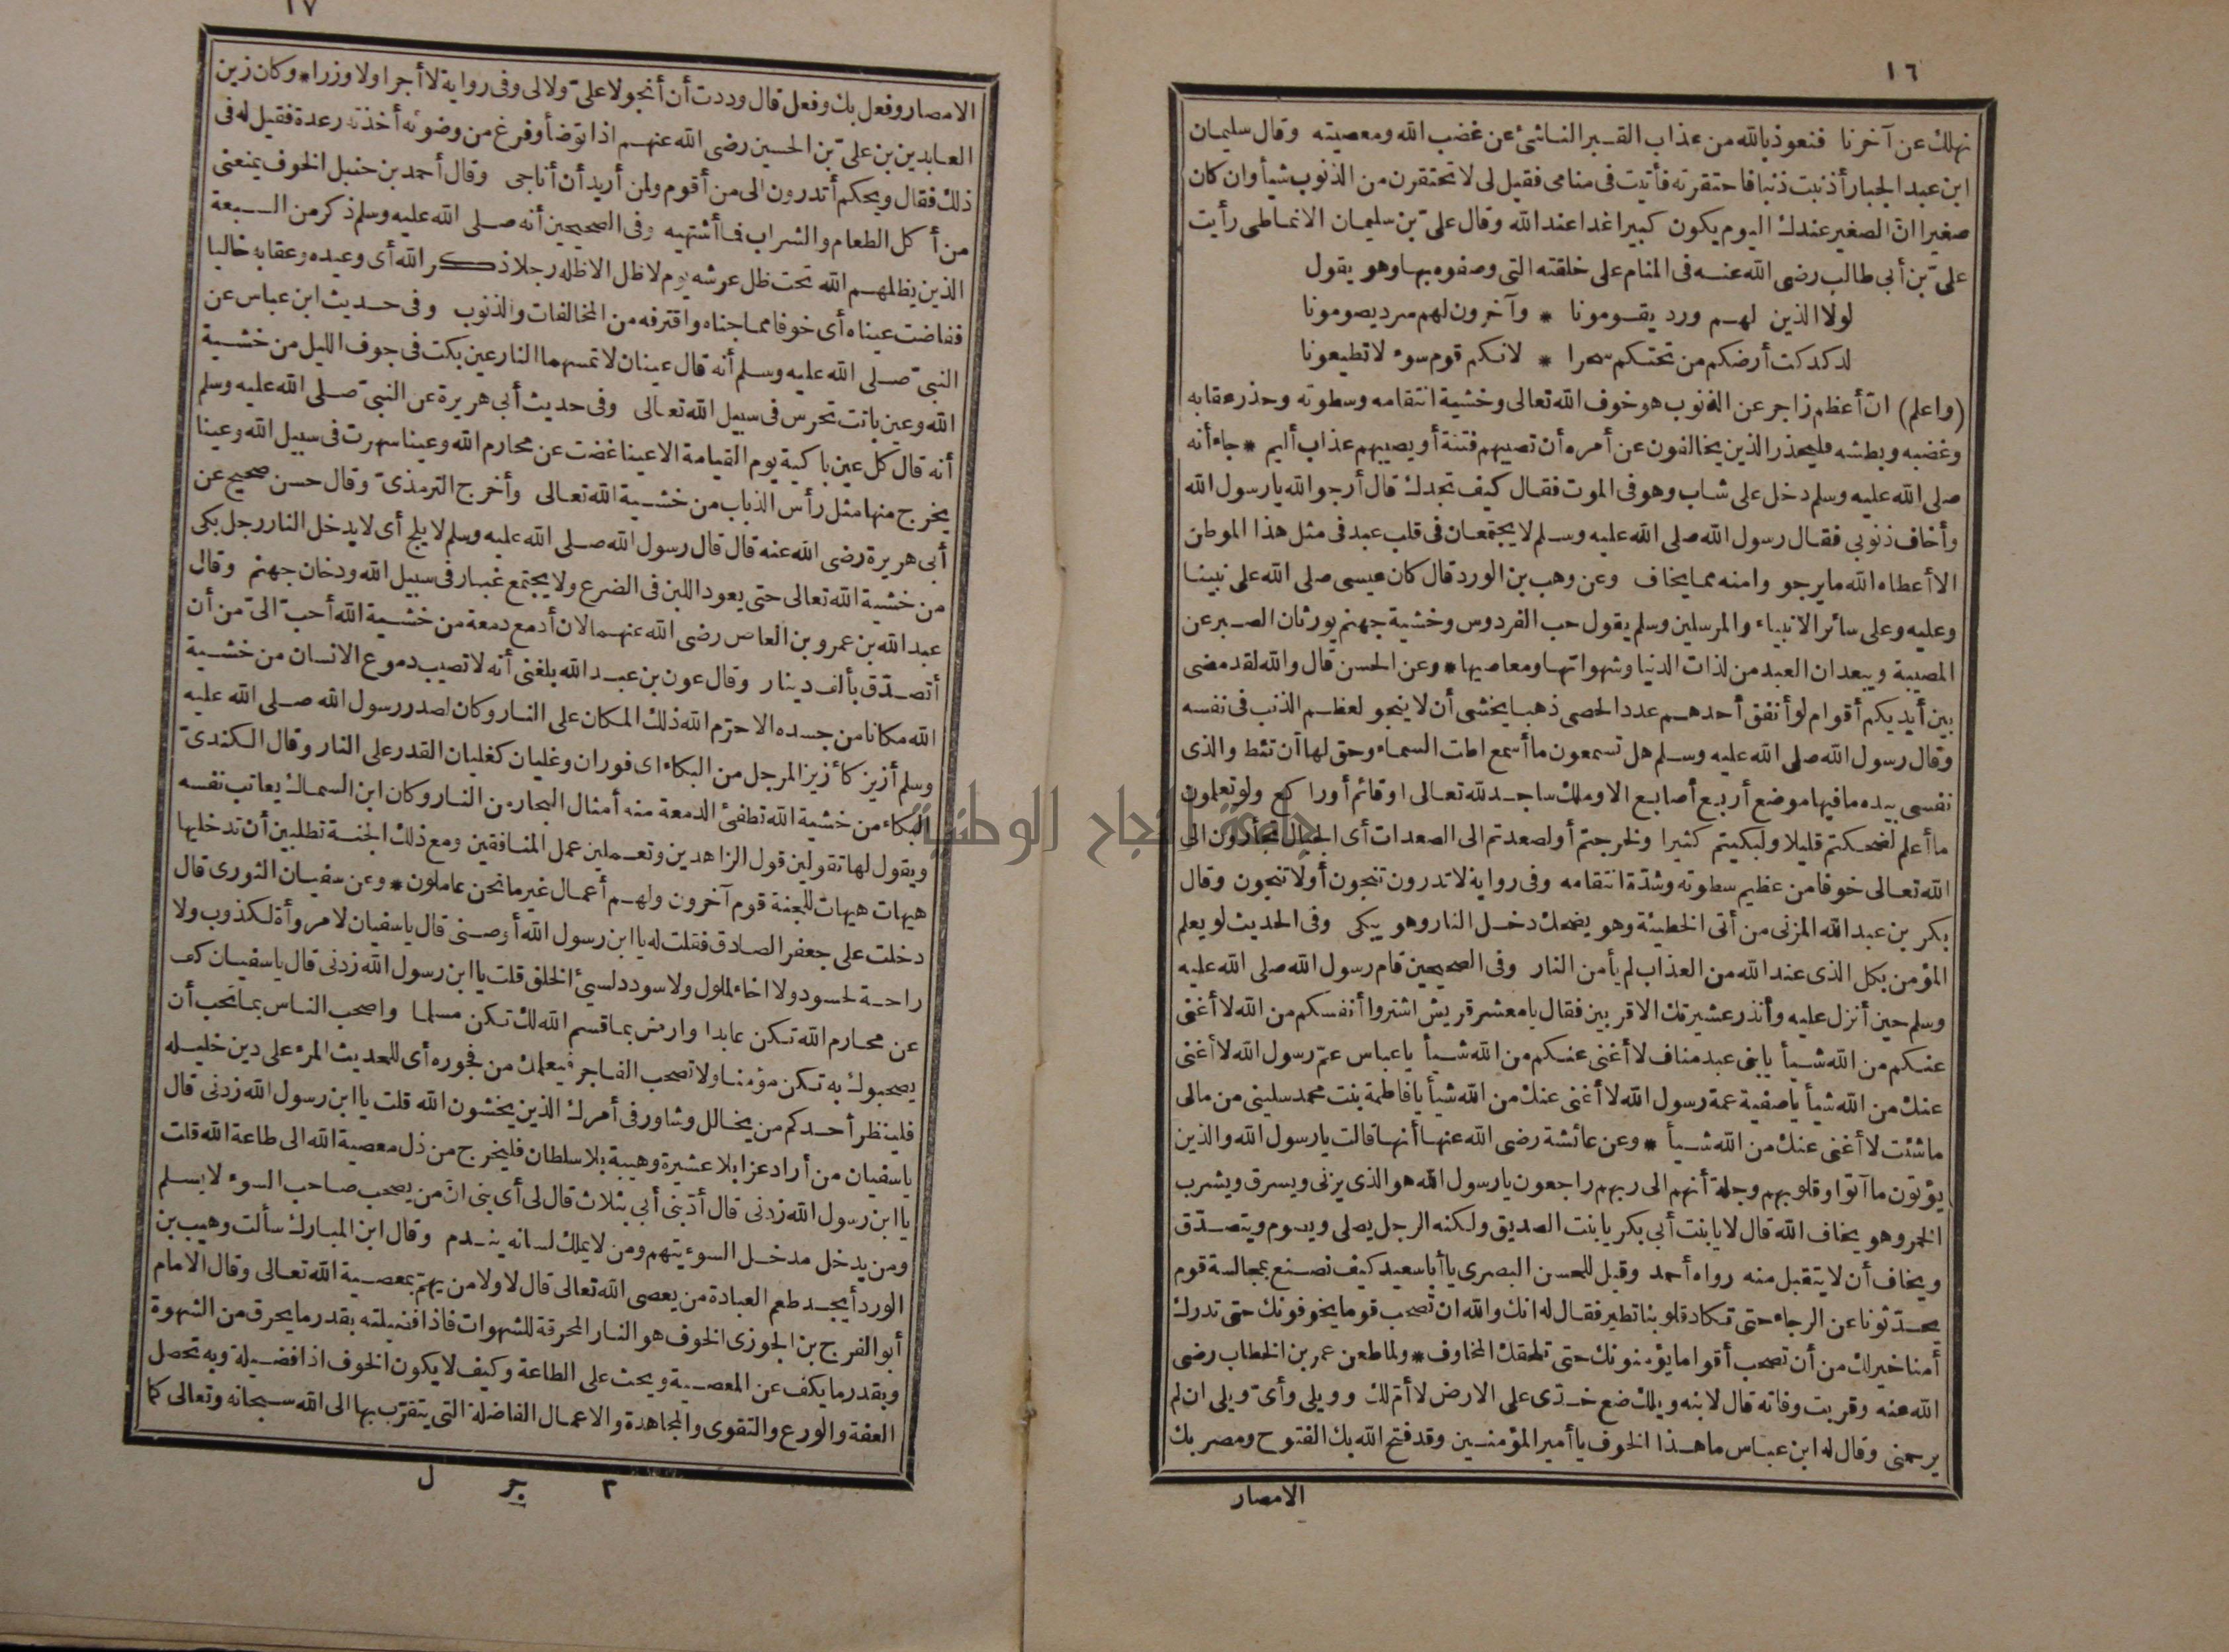 ١٦
نهلك عن آخرنا فنعوذ بالله من عذاب القبر الناشئ عن غضب الله ومعصيته وقال سليمان
ابن عبد الجبار أذنبت ذنبا فاحتقرته فأتيت فى منامى فقيل لى لا تحتقرن من الذنوب شيأ وان كان
صغيرا ان الصغير عندك اليوم يكون كبيرا غدا عند الله وقال علىّ بن سليمان الانماطى رأيت
علىّ بن أبى طالب رضى الله عنه فى المنام على خلقته التى وصفوه بها وهو يقول
لولا الذين لهم ورد يقومونا * وآخرون لهم سرد يصومونا
لدكدكت أرضكم من تحتكم سحرا * لانكم قوم سوء لا تطيعونا
(واعلم) انّ أعظم زاجر عن الذنوب هو خوف الله تعالى وخشية انتقامه وسطوته وحذر عقابه
وغضبه وبطشه فليحذر الذين يخالفون عن أمره أن تصيبهم فتنة أو يصيبهم عذاب أليم * جاء أنه
صلى الله عليه وسلم دخل على شاب وهو فى الموت فقال كيف تجدك قال أرجو الله يا رسول الله
وأخاف ذنوبى فقال رسول الله صلى الله عليه وسلم لا يجتمعان فى قلب عبد فى مثل هذا الموطن
الا أعطاه الله ما يرجو وامنه مما يخاف وعن وهب بن الورد قال كان عيسى صلى الله على نبينا
وعليه وعلى سائر الانبياء والمرسلين وسلم يقول حب الفردوس وخشية جهنم يورثان الصبر عن
المصيبة ويبعدان العبد من لذات الدنيا وشهواتها ومعاصيها * وعن الحسن قال والله لقد مضى
بين أيديكم أقوام لو أنفق أحدهم عدد الحصى ذهبا يخشى أن لا ينجو لعظم الذنب فى نفسه
وقال رسول الله صلى الله عليه وسلم هل تسمعون ما أسمع اطت السماء وحق لها أن تئط والذى
نفسى بيده ما فيها موضع أربع أصابع الا وملك ساجد لله تعالى او قائم أو راكع ولو تعلمون
ما أعلم لضحكتم قليلا ولبكيتم كثيرا ولخرجتم أو لصعدتم الى الصعدات أى الجبال تجأرون الى
الله تعالى خوفا من عظيم سطوته وشدّة انتقامه وفى رواية لا تدرون تنجون أو لا تنجون وقال
بكر بن عبد الله المزنى من أتى الخطيئة وهو يضحك دخل النار وهو يبكى وفى الحديث لو يعلم
المؤمن بكل الذى عند الله من العذاب لم يأمن النار وفى الصحيحين قام رسول الله صلى الله عليه
وسلم حين أنزل عليه وأنذر عشيرتك الاقربين فقال يا معشر قريش اشتروا أنفسكم من الله لا أغنى
عنكم من الله شيأ يا بنى عبد مناف لا أغنى عنكم من الله شيأ يا عباس عمّ رسول الله لا أغنى
عنك من الله شيأ يا صفية عمة رسول الله لا أغنى عنك من الله شيأ يا فاطمة بنت محمد سلينى من مالى
ما شئت لا أغنى عنك من الله شيأ * وعن عائشة رضى الله عنها أنها قالت يا رسول الله والذين
يؤتون ما آتوا وقلوبهم وجلة أنهم الى ربهم راجعون يا رسول الله هو الذى يزنى ويسرق ويشرب
الخمر وهو يخاف الله قال لا يا بنت أبى بكر يا بنت الصديق ولكنه الرجل يصلى ويصوم ويتصدّق
ويخاف أن لا يتقبل منه رواه أحمد وقيل للحسن البصرى يا أبا سعيد كيف نصنع بمجالسة قوم
يحدّثونا عن الرجاء حتى تكاد قلوبنا تطير فقال له انك والله ان تصحب قوما يخوفونك حتى تدرك
أمنا خير لك من أن تصحب أقواما يؤمنونك حتى تلحقك المخاوف * ولما طعن عمر بن الخطاب رضى
الله عنه وقربت وفاته قال لابنه ويلك ضع خدّى على الارض لا أمّ لك وويلى وأىّ ويلى ان لم
يرحمنى وقال له ابن عباس ما هذا الخوف يا أمير المؤمنين وقد فتح الله بك الفتوح ومصر بك
الامصار
١٧
الامصار وفعل بك وفعل قال وددت أن أنجو لا علىّ ولا لى وفى رواية لا أجرا ولا وزرا * وكان زين
العابدين بن علىّ بن الحسين رضى الله عنهم اذا توضأ وفرغ من وضوئه أخذته رعدة فقيل له فى
ذلك فقال ويحكم أتدرون الى من أقوم ولمن أريد أن أناجى وقال أحمد بن حنبل الخوف يمنعنى
من أكل الطعام والشراب فما أشتهيه وفى الصحيحين أنه صلى الله عليه وسلم ذكر من السبعة
الذين يظلهم الله تحت ظل عرشه يوم لا ظل الا ظله رجلا ذكر الله أى وعيده وعقابه خاليا
ففاضت عيناه أى خوفا مما جناه واقترفه من المخالفات والذنوب وفى حديث ابن عباس عن
النبىّ صلى الله عليه وسلم أنه قال عينان لا تمسهما النار عين بكت فى جوف الليل من خشية
الله وعين باتت تحرس فى سبيل الله تعالى وفى حديث أبى هريرة عن النبىّ صلى الله عليه وسلم
أنه قال كل عين باكية يوم القيامة الا عينا غضت عن محارم الله وعينا سهرت فى سبيل الله وعينا
يخرج منها مثل رأس الذباب من خشية الله تعالى وأخرج الترمذىّ وقال حسن صحيح عن
أبى هريرة رضى الله عنه قال قال رسول الله صلى الله عليه وسلم لا يلج أى لا يدخل النار رجل بكى
من خشية الله تعالى حتى يعود اللبن فى الضرع ولا يجتمع غبار فى سبيل الله ودخان جهنم وقال
عبد الله بن عمرو بن العاص رضى الله عنهما لان أدمع دمعة من خشية الله أحبّ الىّ من أن
أتصدّق بألف دينار وقال عون بن عبد الله بلغنى أنه لا تصيب دموع الانسان من خشية
الله مكانا من جسده الا حرّم الله ذلك المكان على النار وكان لصدر رسول الله صلى الله عليه
وسلم أزيز كأزيز المرجل من البكاء اى فوران وغليان كغليان القدر على النار وقال الكندىّ
البكاء من خشية الله تطفئ الدمعة منه أمثال البحار من النار وكان ابن السماك يعاتب نفسه
ويقول لها تقولين قول الزاهدين وتعملين عمل المنافقين ومع ذلك الجنة تطلبين أن تدخليها
هيهات هيهات للجنة قوم آخرون ولهم أعمال غير ما نحن عاملون * وعن سفيان الثورى قال
دخلت على جعفر الصادق فقلت له يا ابن رسول الله أوصنى قال يا سفيان لا مروأة لكذوب ولا
راحة لحسود ولا اخاء لملول ولا سودد لسيئ الخلق قلت يا ابن رسول الله زدنى قال يا سفيان كف
عن محارم الله تكن عابدا وارض بما قسم الله لك تكن مسلما واصحب الناس بما تحب أن
يصحبوك به تكن مؤمنا ولا تصحب الفاجر فيعلمك من فجوره أى للحديث المرء على دين خليله
فلينظر أحدكم من يخالل وشاور فى أمرك الذين يخشون الله قلت يا ابن رسول الله زدنى قال
يا سفيان من أراد عزا بلا عشيرة وهيبة بلا سلطان فليخرج من ذل معصية الله الى طاعة الله قلت
يا ابن رسول الله زدنى قال أدّبنى أبى بثلاث قال لى أى بنى انّ من يصحب صاحب السوء لا يسلم
ومن يدخل مدخل السوء يتهم ومن لا يملك لسانه يندم وقال ابن المبارك سألت وهيب بن
الورد أيجد طعم العبادة من يعصى الله تعالى قال لا ولا من يهمّ بمعصية الله تعالى وقال الامام
أبو الفرج بن الجوزى الخوف هو النار المحرقة للشهوات فاذا فضيلته بقدر ما يحرق من الشهوة
وبقدر ما يكف عن المعصية ويحث على الطاعة وكيف لا يكون الخوف اذا فضيلة وبه تحصل
العفة والورع والتقوى والمجاهدة والاعمال الفاضلة التى يتقرّب بها الى الله سبحانه وتعالى كما
٢ جر ل
جامعة النجاح الوطنية